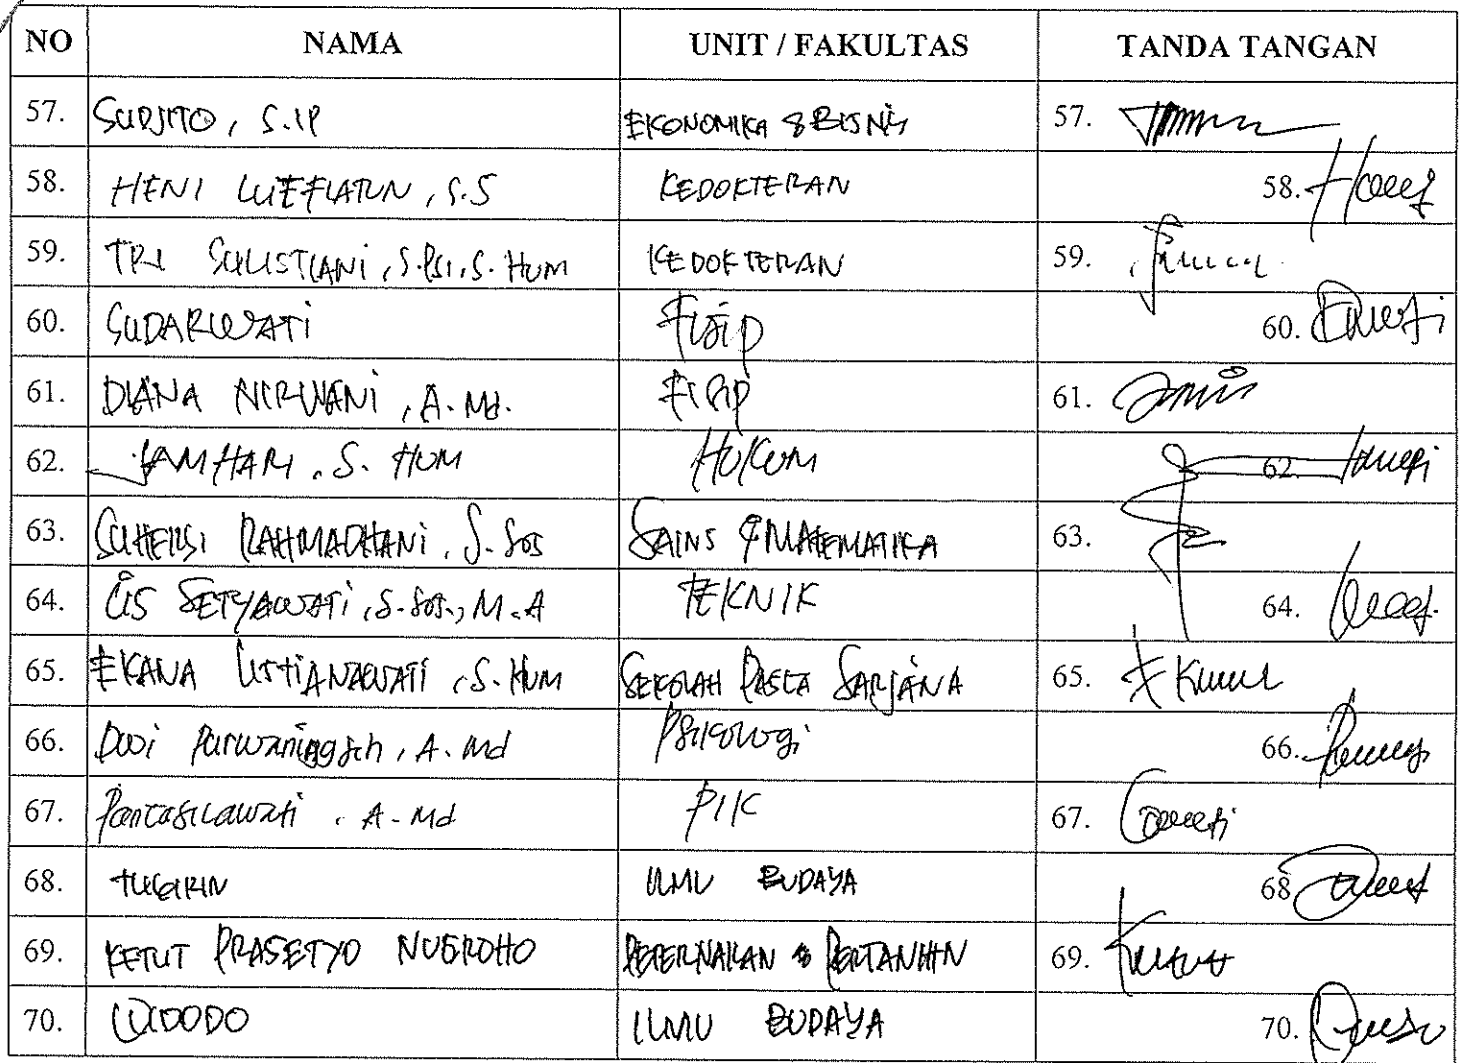 NO NAMA UNIT / FAKULTAS TANDA TANGAN
57. SUDJITO, S.IP EKONOMIKA & BISNIS 57.
58. HENI LUEFLATUN, S.S KEDOKTERAN 58.
59. TRI SULISTIANI, S.Psi, S. HUM KEDOKTERAN 59.
60. SUDARWATI Fisip 60.
61. DIANA NIRWANI, A. Md. FISip 61.
62. JAMHARI, S. HUM HUKUM 62.
63. SUHERSI RAHMADHANI, S. Sos SAINS & MATEMATIKA 63.
64. IIS SETYAWATI, S. Sos., M.A TEKNIK 64.
65. EKANA LISTIANAWATI, S. HUM SEKOLAH PASCA SARJANA 65.
66. Dwi Purwaninggsih, A. Md Psikologi 66.
67. Pancasilawati, A- Md PIK 67.
68. TUGIRIN ILMU BUDAYA 68
69. KETUT PRASETYO NUGROHO PETERNAKAN & PERTANIAN 69.
70. WIDODO ILMU BUDAYA 70.